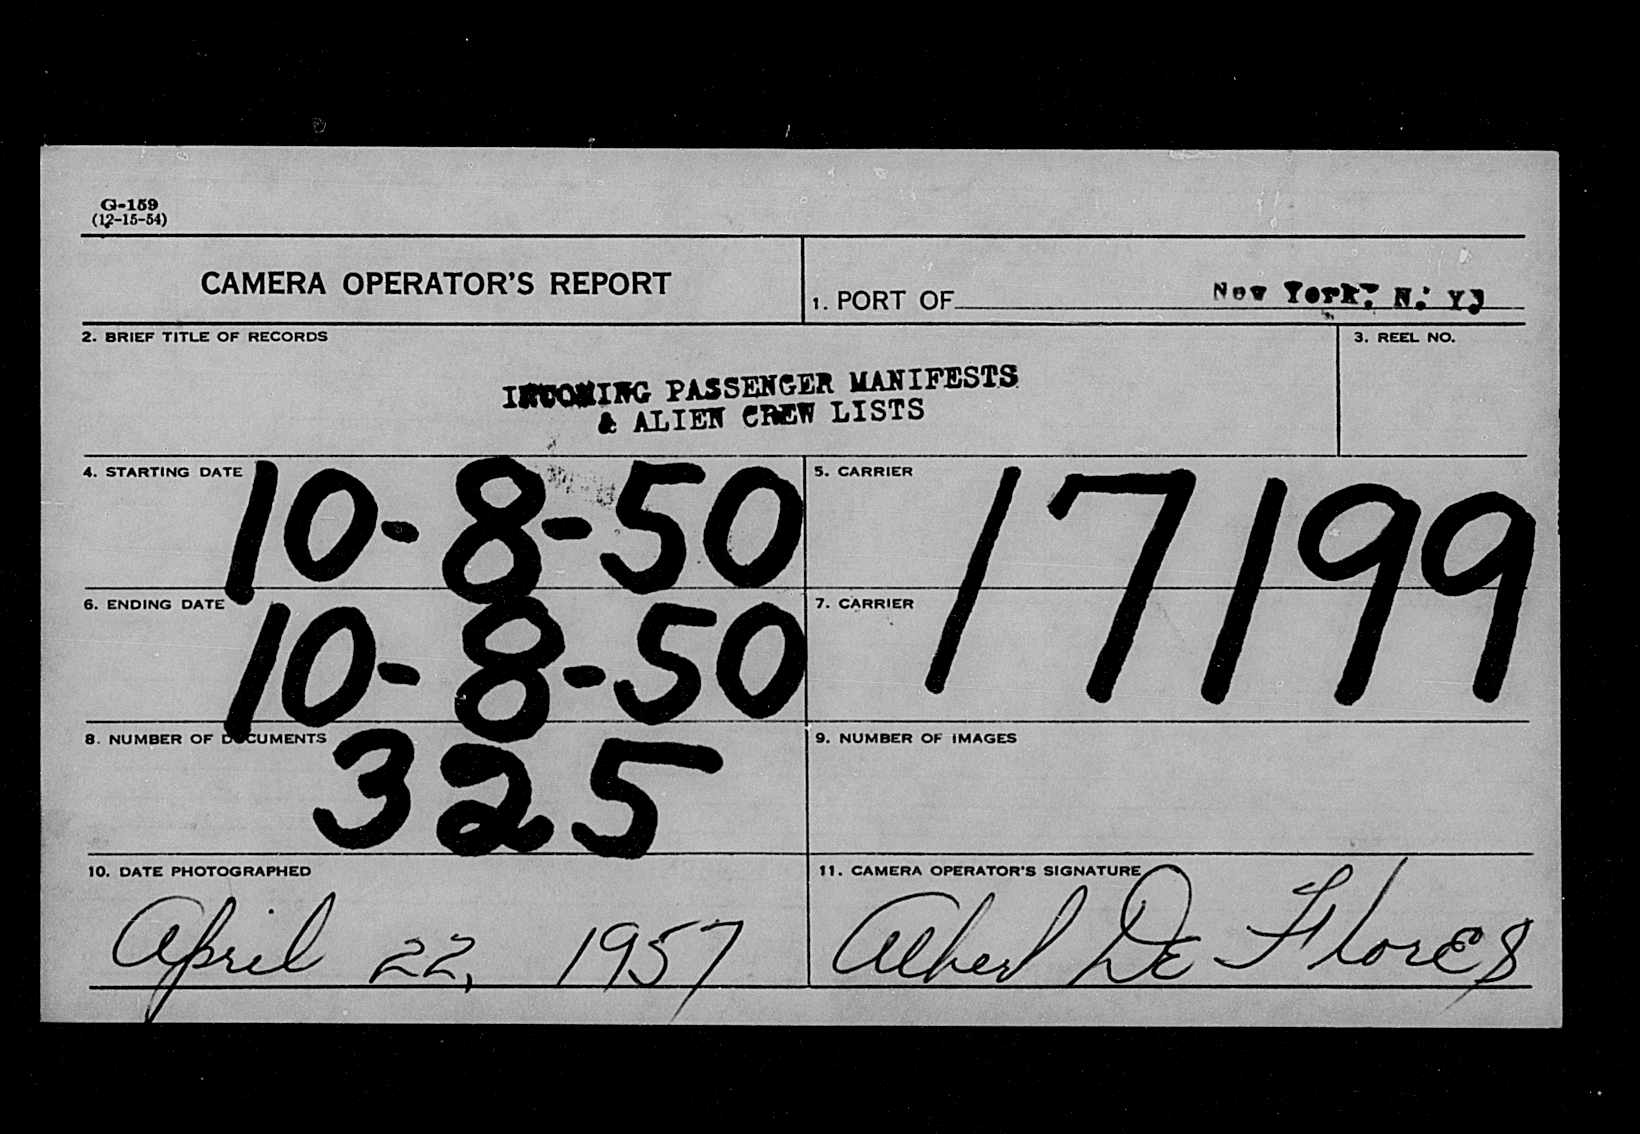 G-159
(12-15-54)
CAMERA OPERATOR'S REPORT
1. PORT OF New York, N. Y.
2. BRIEF TITLE OF RECORDS
3. REEL NO.
INCOMING PASSENGER MANIFESTS
& ALIEN CREW LISTS
4. STARTING DATE 10-8-50
5. CARRIER
17199
6. ENDING DATE 10-8-50
7. CARRIER
8. NUMBER OF DOCUMENTS 325
9. NUMBER OF IMAGES
10. DATE PHOTOGRAPHED
April 22, 1957
11. CAMERA OPERATOR'S SIGNATURE
Albert De Flores